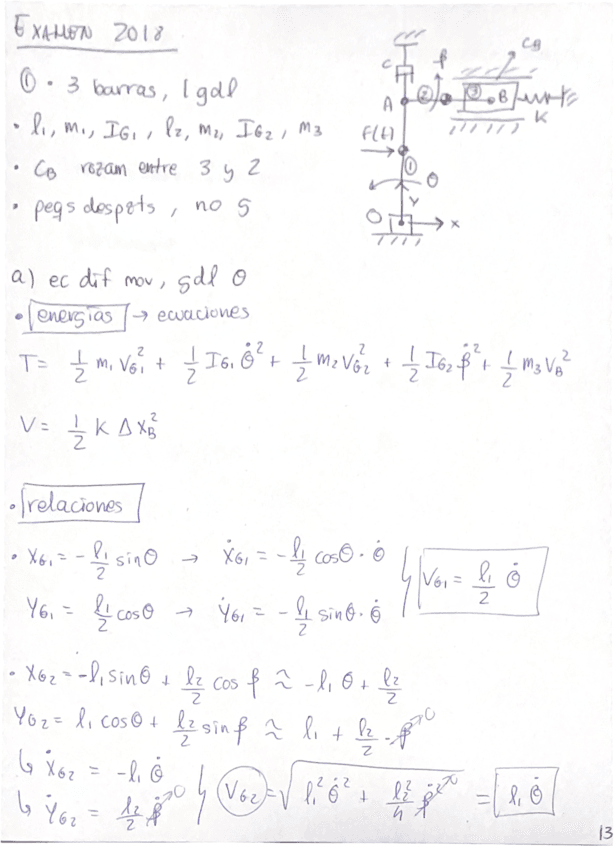 EXAMEN 2018
① • 3 barras, 1 gdl
• l₁, m₁, I_G1, l₂, m₂, I_G2, m₃
• C_B rozam entre 3 y 2
• peqs despzts, no g
C
A
②
β
③
•B
C_B
K
F(t)
①
θ
Y
O
x
a) ec dif mov, gdl θ
• energías → ecuaciones
T = 1/2 m₁ V_G1² + 1/2 I_G1 θ̇² + 1/2 m₂ V_G2² + 1/2 I_G2 β̇² + 1/2 m₃ V_B²
V = 1/2 K Δx_B²
• relaciones
• X_G1 = - l₁/2 sinθ → Ẋ_G1 = - l₁/2 cosθ · θ̇
Y_G1 = l₁/2 cosθ → Ẏ_G1 = - l₁/2 sinθ · θ̇
V_G1 = l₁/2 θ̇
• X_G2 = -l₁ sinθ + l₂/2 cos β ≈ -l₁ θ + l₂/2
Y_G2 = l₁ cosθ + l₂/2 sin β ≈ l₁ + l₂/2 · β 0
↳ Ẋ_G2 = -l₁ θ̇
↳ Ẏ_G2 = l₂/2 β̇ 0
V_G2 = √(l₁² θ̇² + l₂²/4 β̇² 0) = l₁ θ̇
13